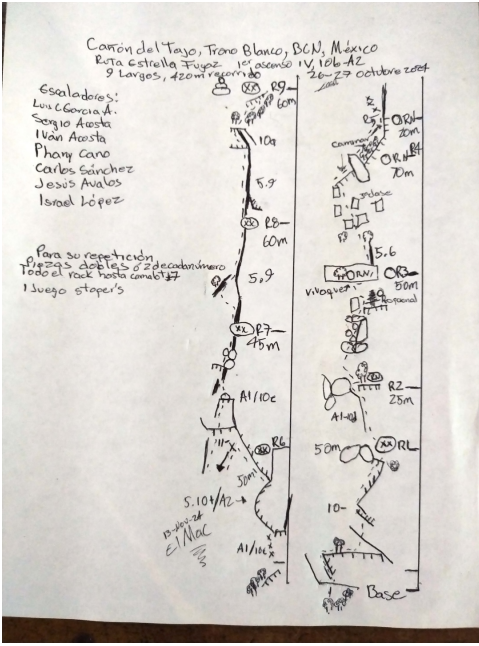 Cañón del Tajo, Trono Blanco, BCN, México
Ruta Estrella Fugaz 1er ascenso IV, 10b-A2
9 Largos, 420m recorrido 26-27 octubre 2024
Escaladores:
Luis C García A.
Sergio Acosta
Iván Acosta
Phany Cano
Carlos Sánchez
Jesús Avalos
Israel López
Para su repetición
Piezas dobles ó 2 de cada número
Todo el rock hasta camalot #7
1 Juego stoper's
XX R9
60m
10a
5.9
XX R8
60m
5.9
XX R7
45m
A1/10c
XX R6
50m
5.10+/A2
A1/10c
13-Nov-24
El Mac
R5 RN
20m
caminar
RN R4
70m
3ra clase
5.6
RN R3
50m
Vivaquer
R2
25m
A1-10d
50m
XX R1
10-
Base